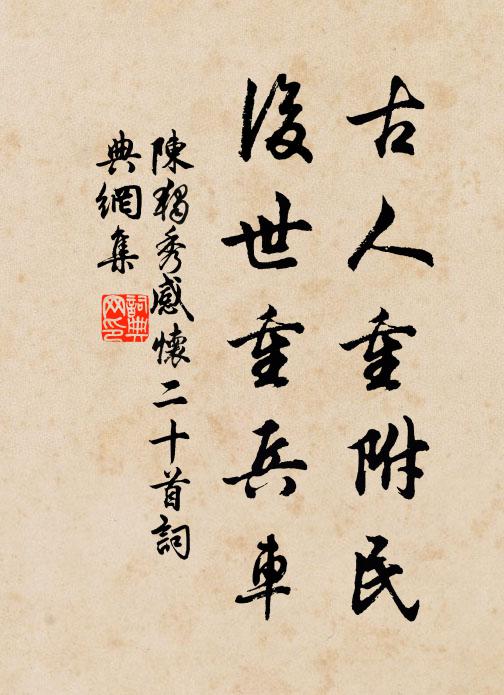 古人重附民
後世重兵車
陳獨秀感懷二十首詞
典網集
詞典
网印